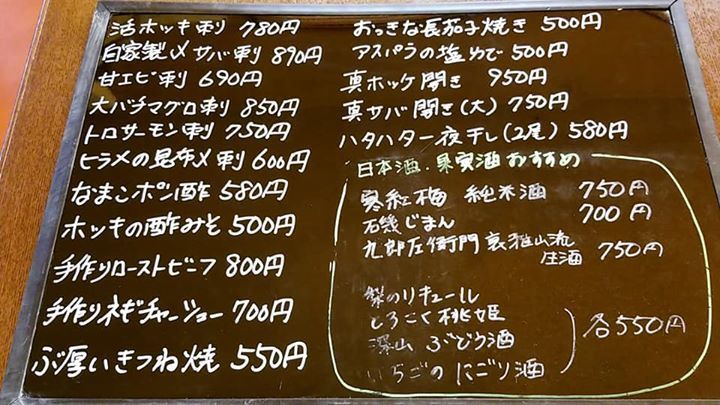 活ホッキ刺 780円
自家製〆サバ刺 890円
甘エビ刺 690円
大バチマグロ刺 850円
トロサーモン刺 750円
ヒラメの昆布〆刺 600円
なまこポン酢 580円
ホッキの酢みそ 500円
手作りローストビーフ 800円
手作りネギチャーシュー 700円
ぶ厚いきつね焼 550円
おっきな長茄子焼き 500円
アスパラの塩ゆで 500円
真ホッケ開き 950円
真サバ開き(大) 750円
ハタハタ一夜干し(2尾) 580円
日本酒・果実酒おすすめ
寒紅梅 純米酒 750円
石磯じまん 700円
九郎左衛門 裏雅山流
生酒 750円
梨のリキュール
とろこく桃姫
深山 ぶどう酒
いちごのにごり酒
各550円